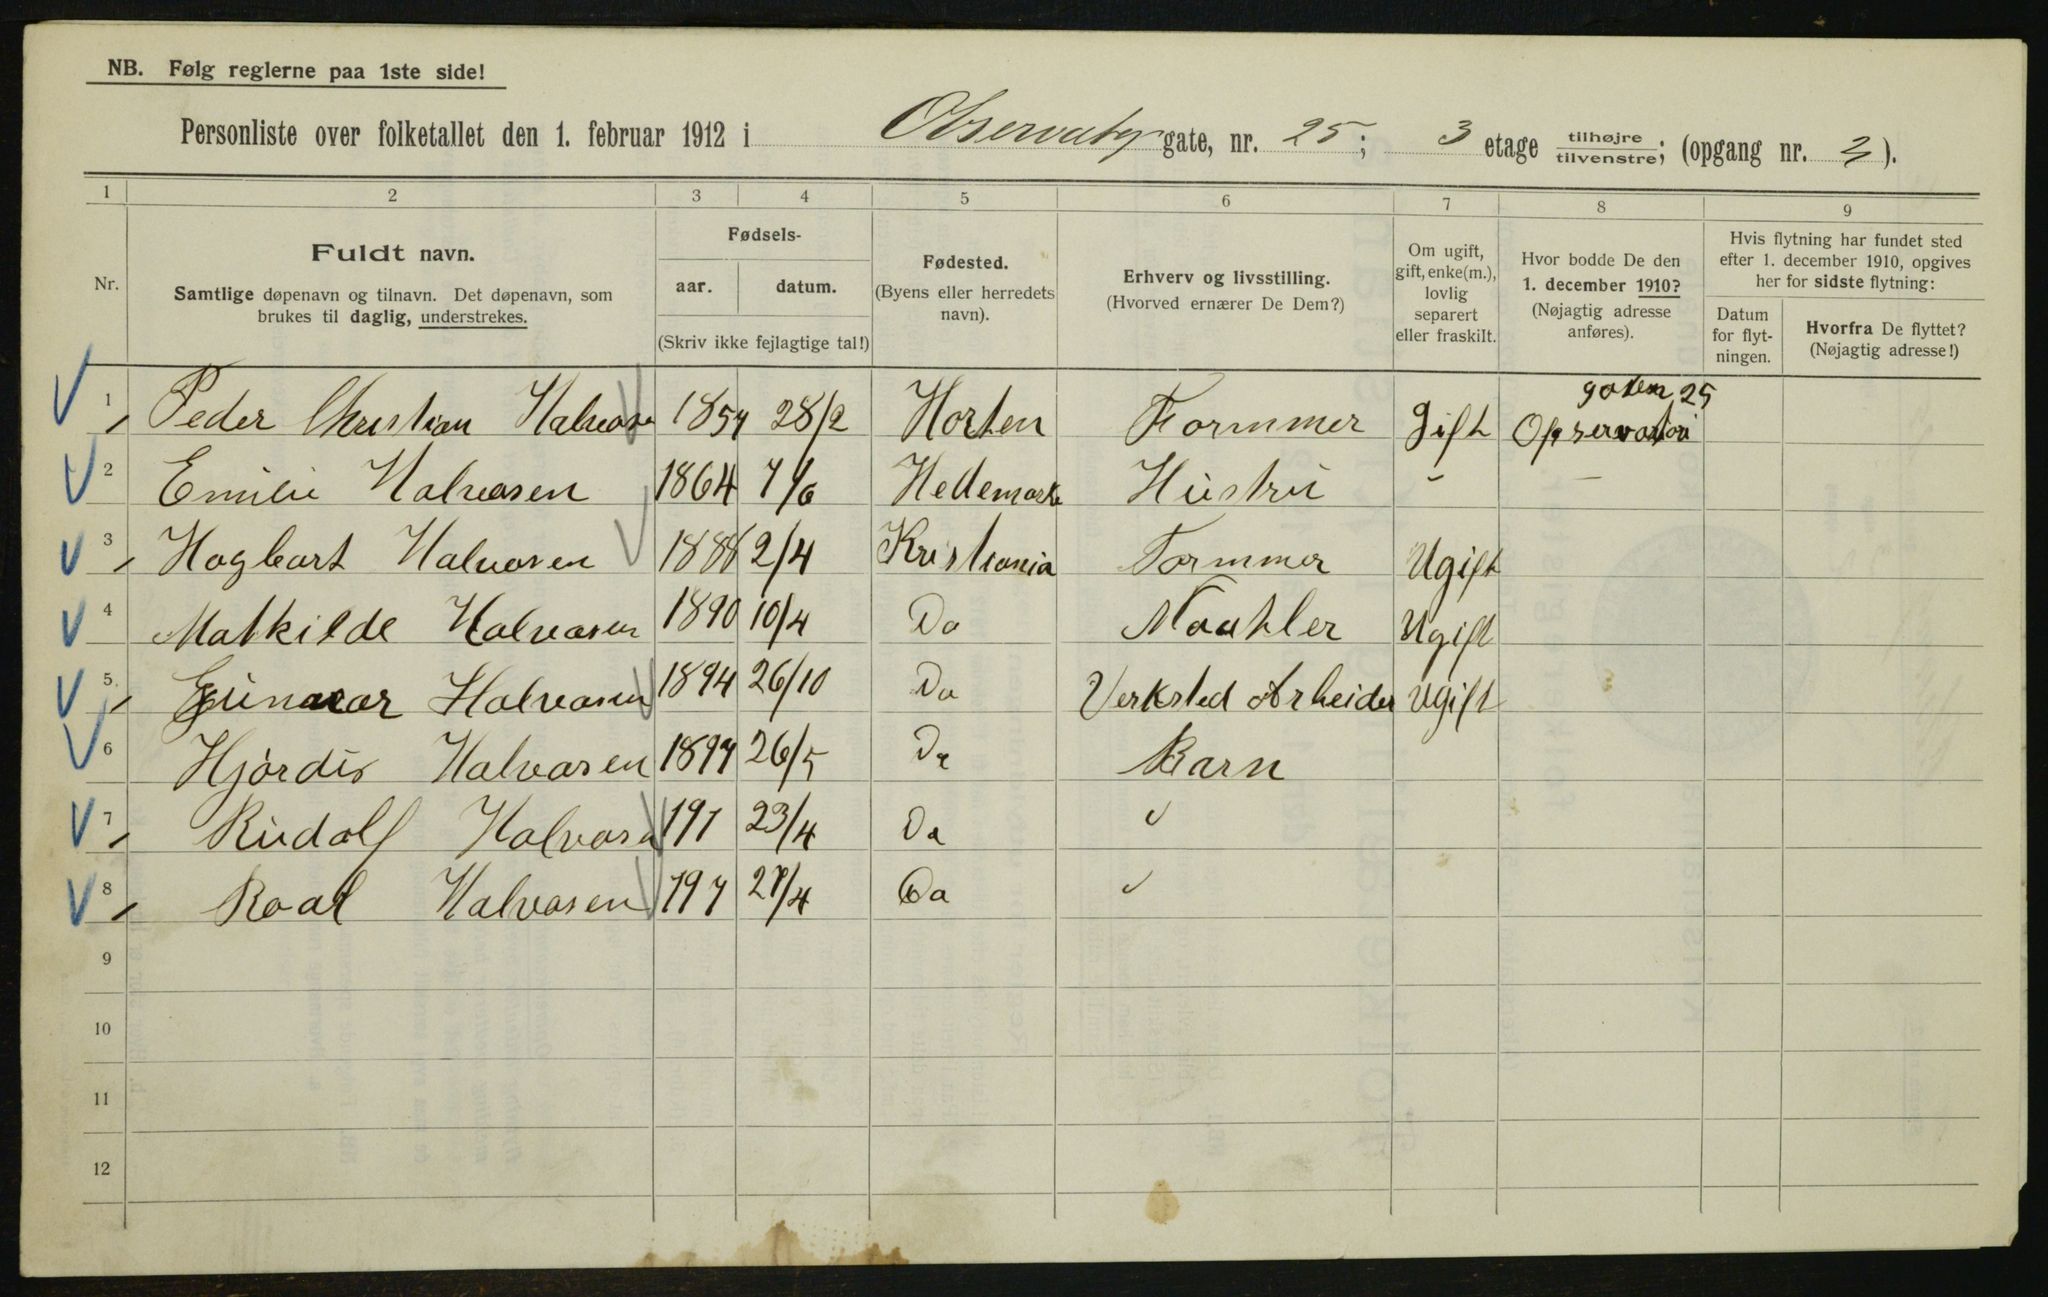 NB. Følg reglerne paa 1ste side!
Personliste over folketallet den 1. februar 1912 i Observatory gate, nr. 25; 3 etage tilhøjre/tilvenstre; (opgang nr. 3).
1 2 3 4 5 6 7 8 9
Nr.
Fuldt navn.
Samtlige døpenavn og tilnavn. Det døpenavn, som
brukes til daglig, understrekes.
Fødsels-
aar. datum.
(Skriv ikke fejlagtige tal!)
Fødested.
(Byens eller herredets
navn).
Erhverv og livsstilling.
(Hvorved ernærer De Dem?)
Om ugift,
gift, enke(m.),
lovlig
separert
eller fraskilt.
Hvor bodde De den
1. december 1910?
(Nøjagtig adresse
anføres).
Hvis flytning har fundet sted
efter 1. december 1910, opgives
her for sidste flytning:
Datum
for flyt-
ningen.
Hvorfra De flyttet?
(Nøjagtig adresse!)
gaten 25
1 Peder Christian Halvosen 1857 28/2 Horten Formmer gift Opservatori
2 Emilie Halvosen 1864 7/6 Hedemark Hustru " —
3 Hagbart Halvosen 1888 2/4 Kristiania Formmer Ugift
4 Mathilde Halvosen 1890 10/4 Do Ugift
5 Gunar Halvosen 1894 26/10 Do Verksted Arbeider Ugift
6 Hjørdis Halvosen 1897 26/5 Do Barn
7 Rudolf Halvosen 191 23/4 Do "
8 Roal Halvosen 197 27/4 Do "
9
10
11
12